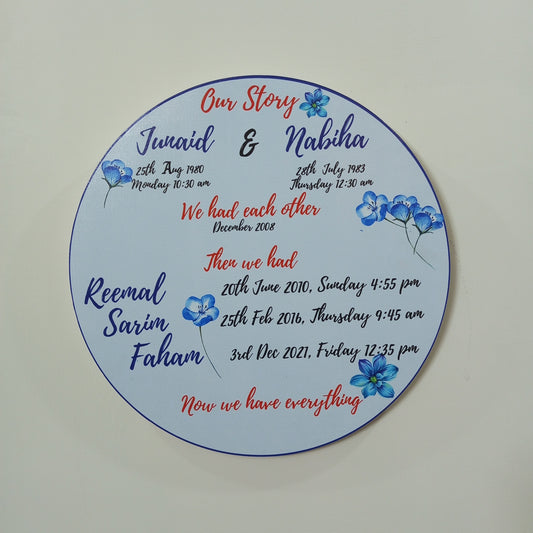 Our Story
Junaid & Nabiha
25th Aug 1980 28th July 1983
Monday 10:30 am Thursday 12:30 am
We had each other
December 2008
Then we had
Reemal 20th June 2010, Sunday 4:55 pm
Sarim 25th Feb 2016, Thursday 9:45 am
Faham 3rd Dec 2021, Friday 12:35 pm
Now we have everything